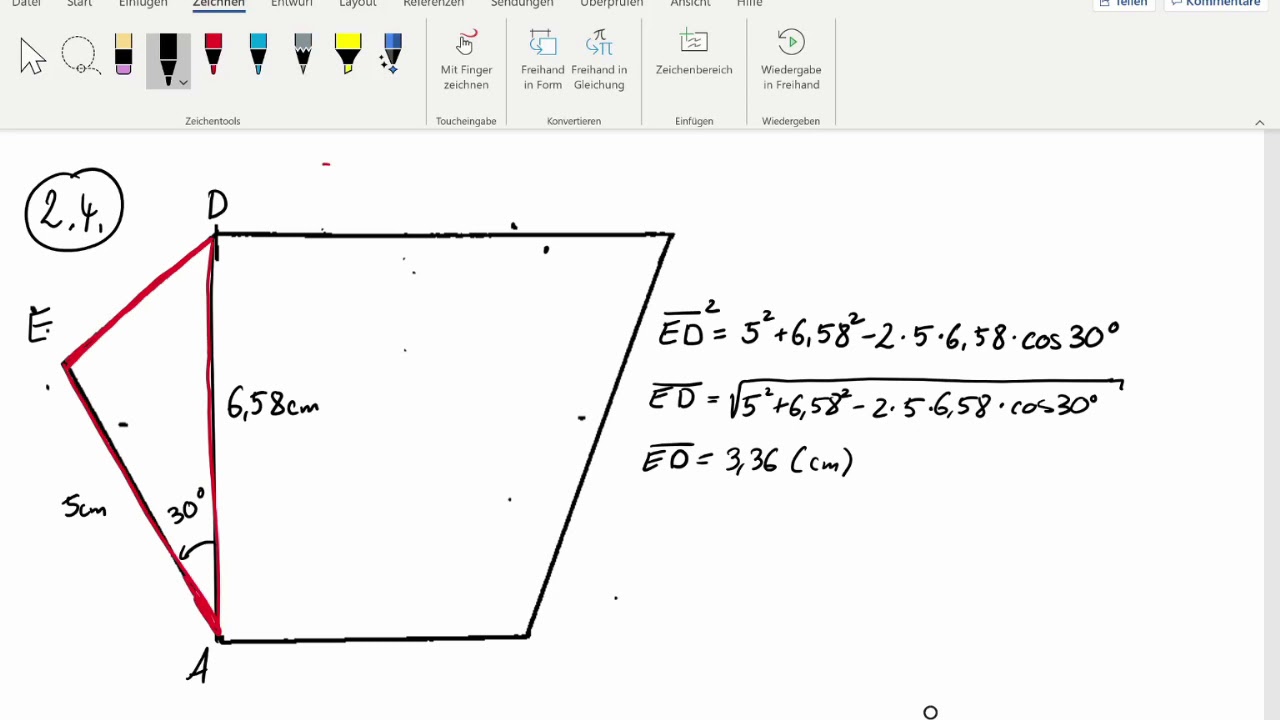 Datei Start Einfügen Zeichnen Entwurf Layout Referenzen Sendungen Überprüfen Ansicht Hilfe Teilen Kommentare
Mit Finger zeichnen
Freihand in Form
Freihand in Gleichung
Zeichenbereich
Wiedergabe in Freihand
Zeichentools
Toucheingabe
Konvertieren
Einfügen
Wiedergeben
2.4.
D
E
6,58cm
5cm
30°
A
E̅D̅² = 5² + 6,58² − 2 · 5 · 6,58 · cos 30°
E̅D̅ = √5² + 6,58² − 2 · 5 · 6,58 · cos 30°
E̅D̅ = 3,36 (cm)